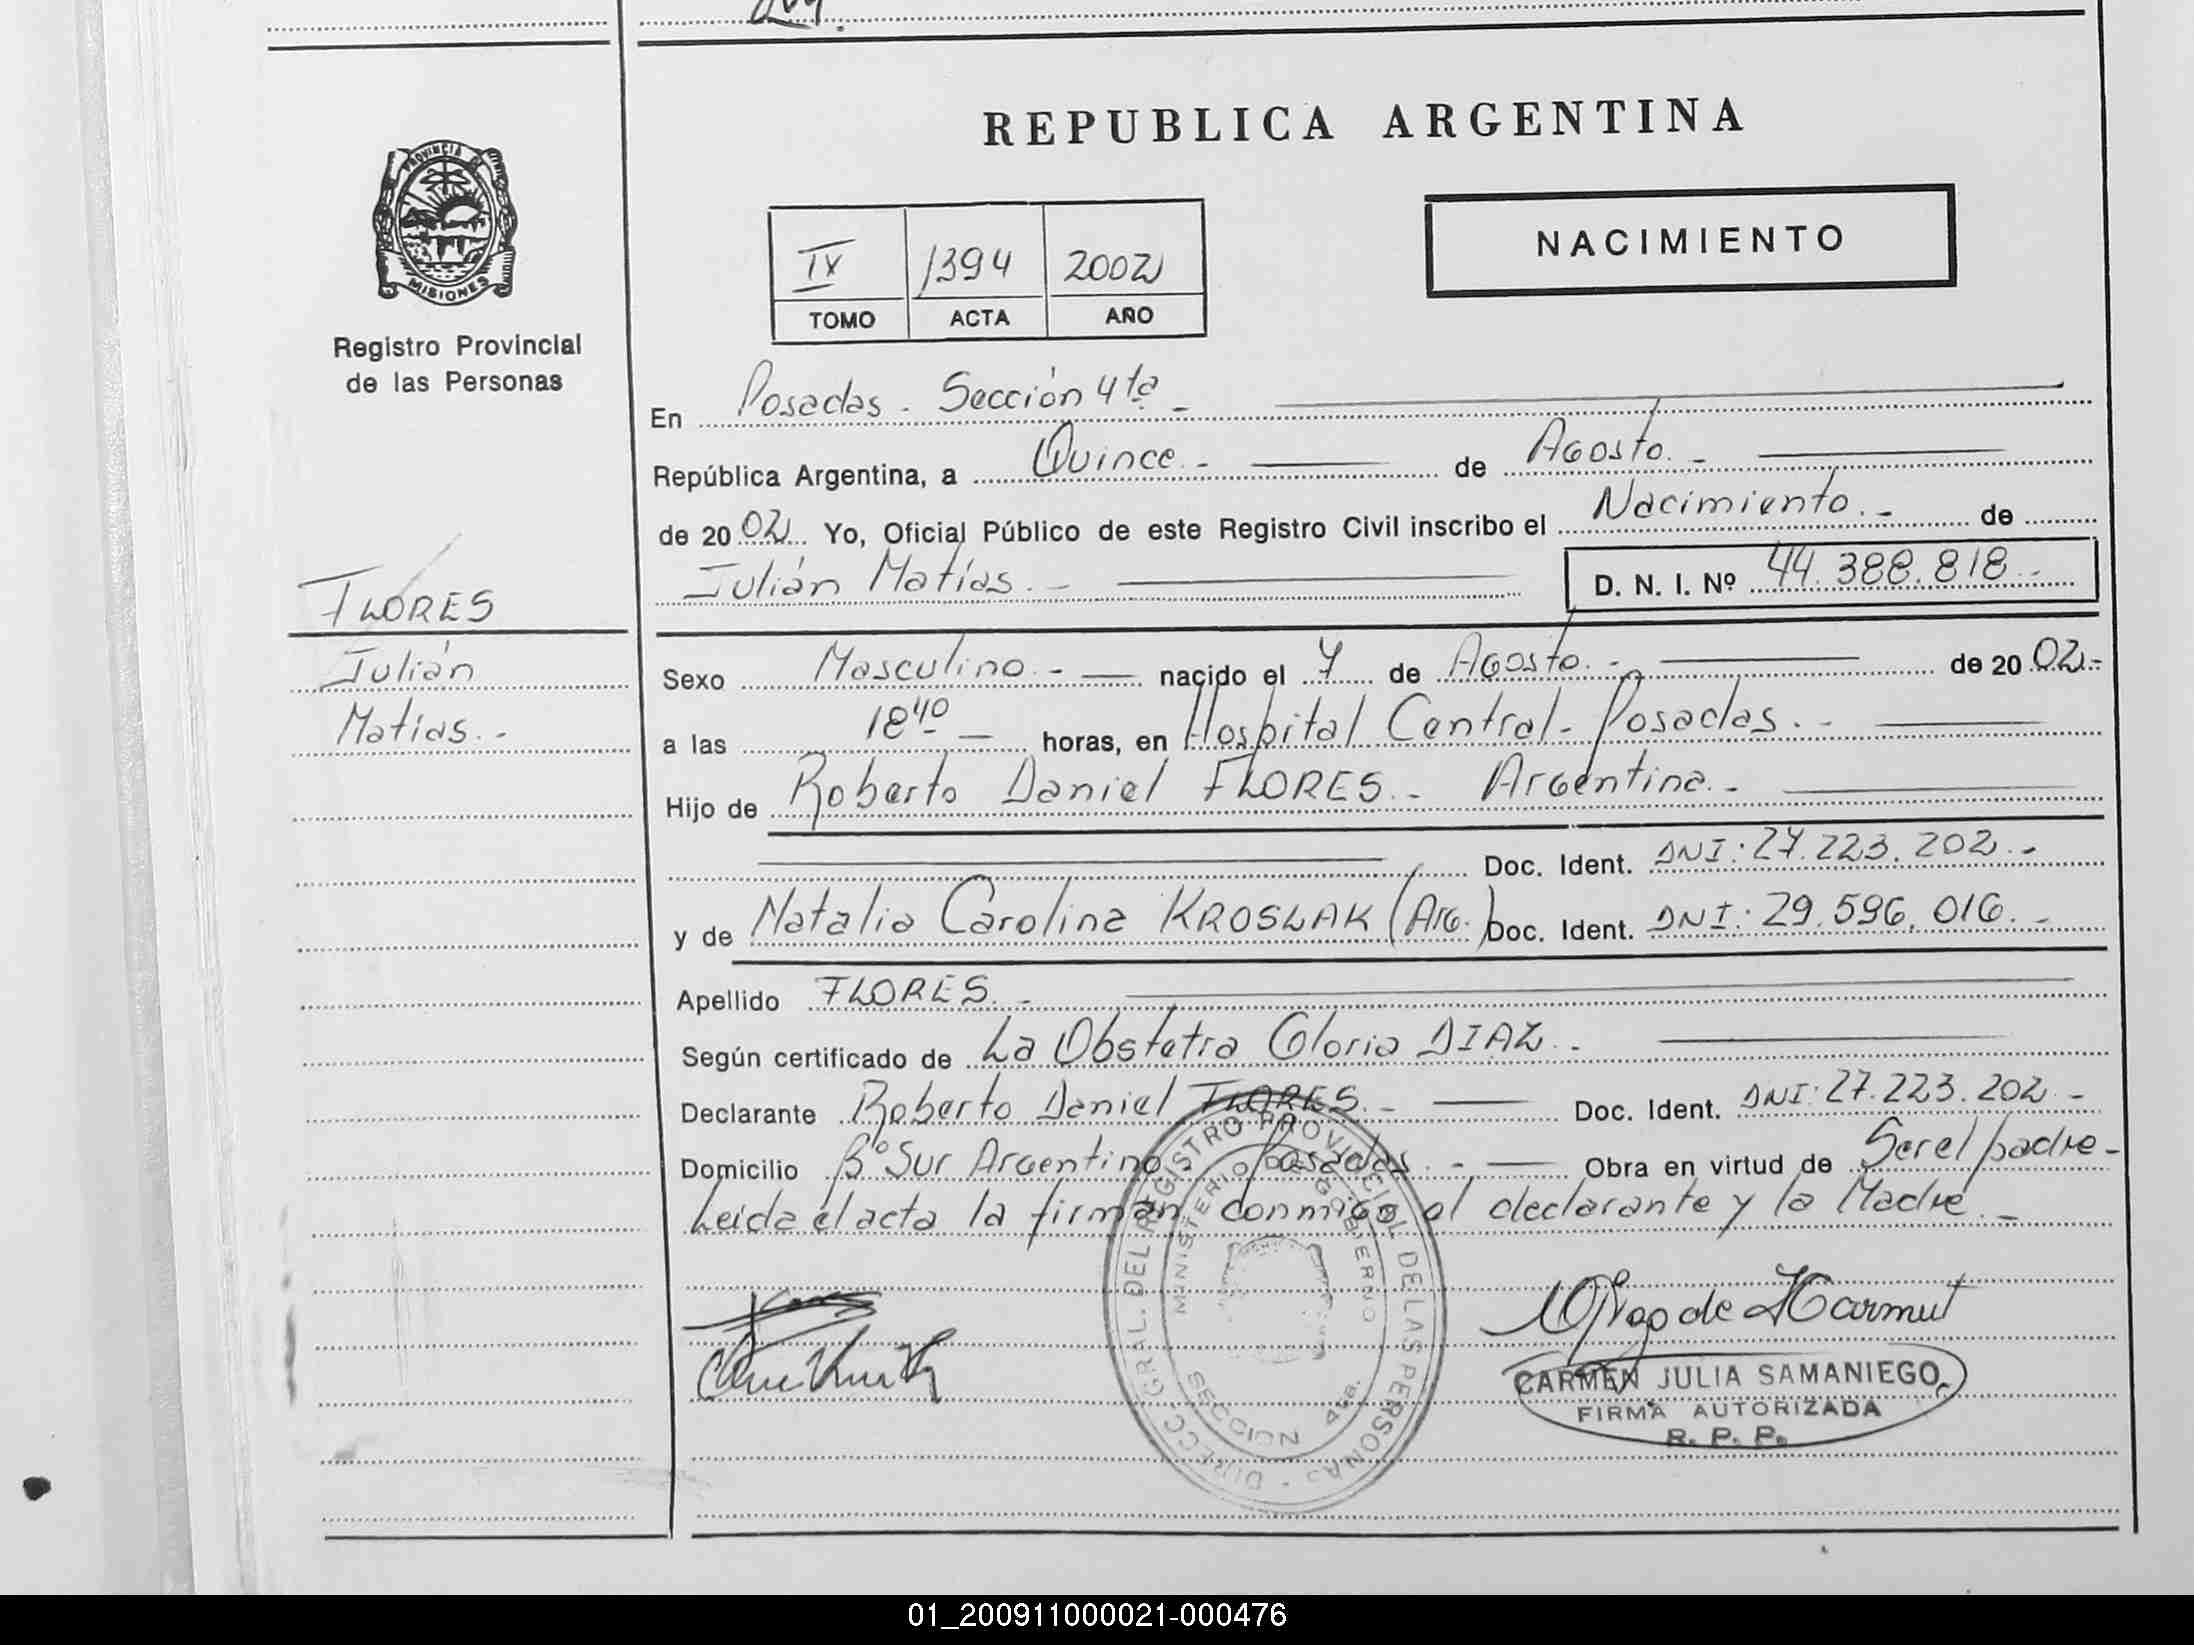 REPUBLICA ARGENTINA
PROVINCIA DE
MISIONES
Registro Provincial
de las Personas
NACIMIENTO
IX 1394 2002
TOMO ACTA AÑO
En Posadas - Sección 4ta -
República Argentina, a Quince.- de Agosto.-
de 2002 Yo, Oficial Público de este Registro Civil inscribo el Nacimiento.- de
Julián Matías.- D. N. I. Nº 44.388.818.-
FLORES
Julián
Matías.-
Sexo Masculino.- nacido el 7 de Agosto.- de 2002.-
a las 18 40 horas, en Hospital Central - Posadas.-
Hijo de Roberto Daniel FLORES.- Argentina.-
Doc. Ident. DNI: 27.223.202.-
y de Natalia Carolina KROSLAK (Arg.) Doc. Ident. DNI: 29.596.016.-
Apellido FLORES.-
Según certificado de La Obstetra Gloria DIAZ.-
Declarante Roberto Daniel FLORES.- Doc. Ident. DNI: 27.223.202 -
Domicilio Bº Sur Argentino. Posadas.- Obra en virtud de Ser el padre -
Leida el acta la firman conmigo el declarante y la Madre.-
DIRECC. GRAL. DEL REGISTRO PROVINCIAL DE LAS PERSONAS -
MINISTERIO DE GOBIERNO
SECCION 4ta.
de Harmut
CARMEN JULIA SAMANIEGO
FIRMA AUTORIZADA
R. P. P.
01_200911000021-000476